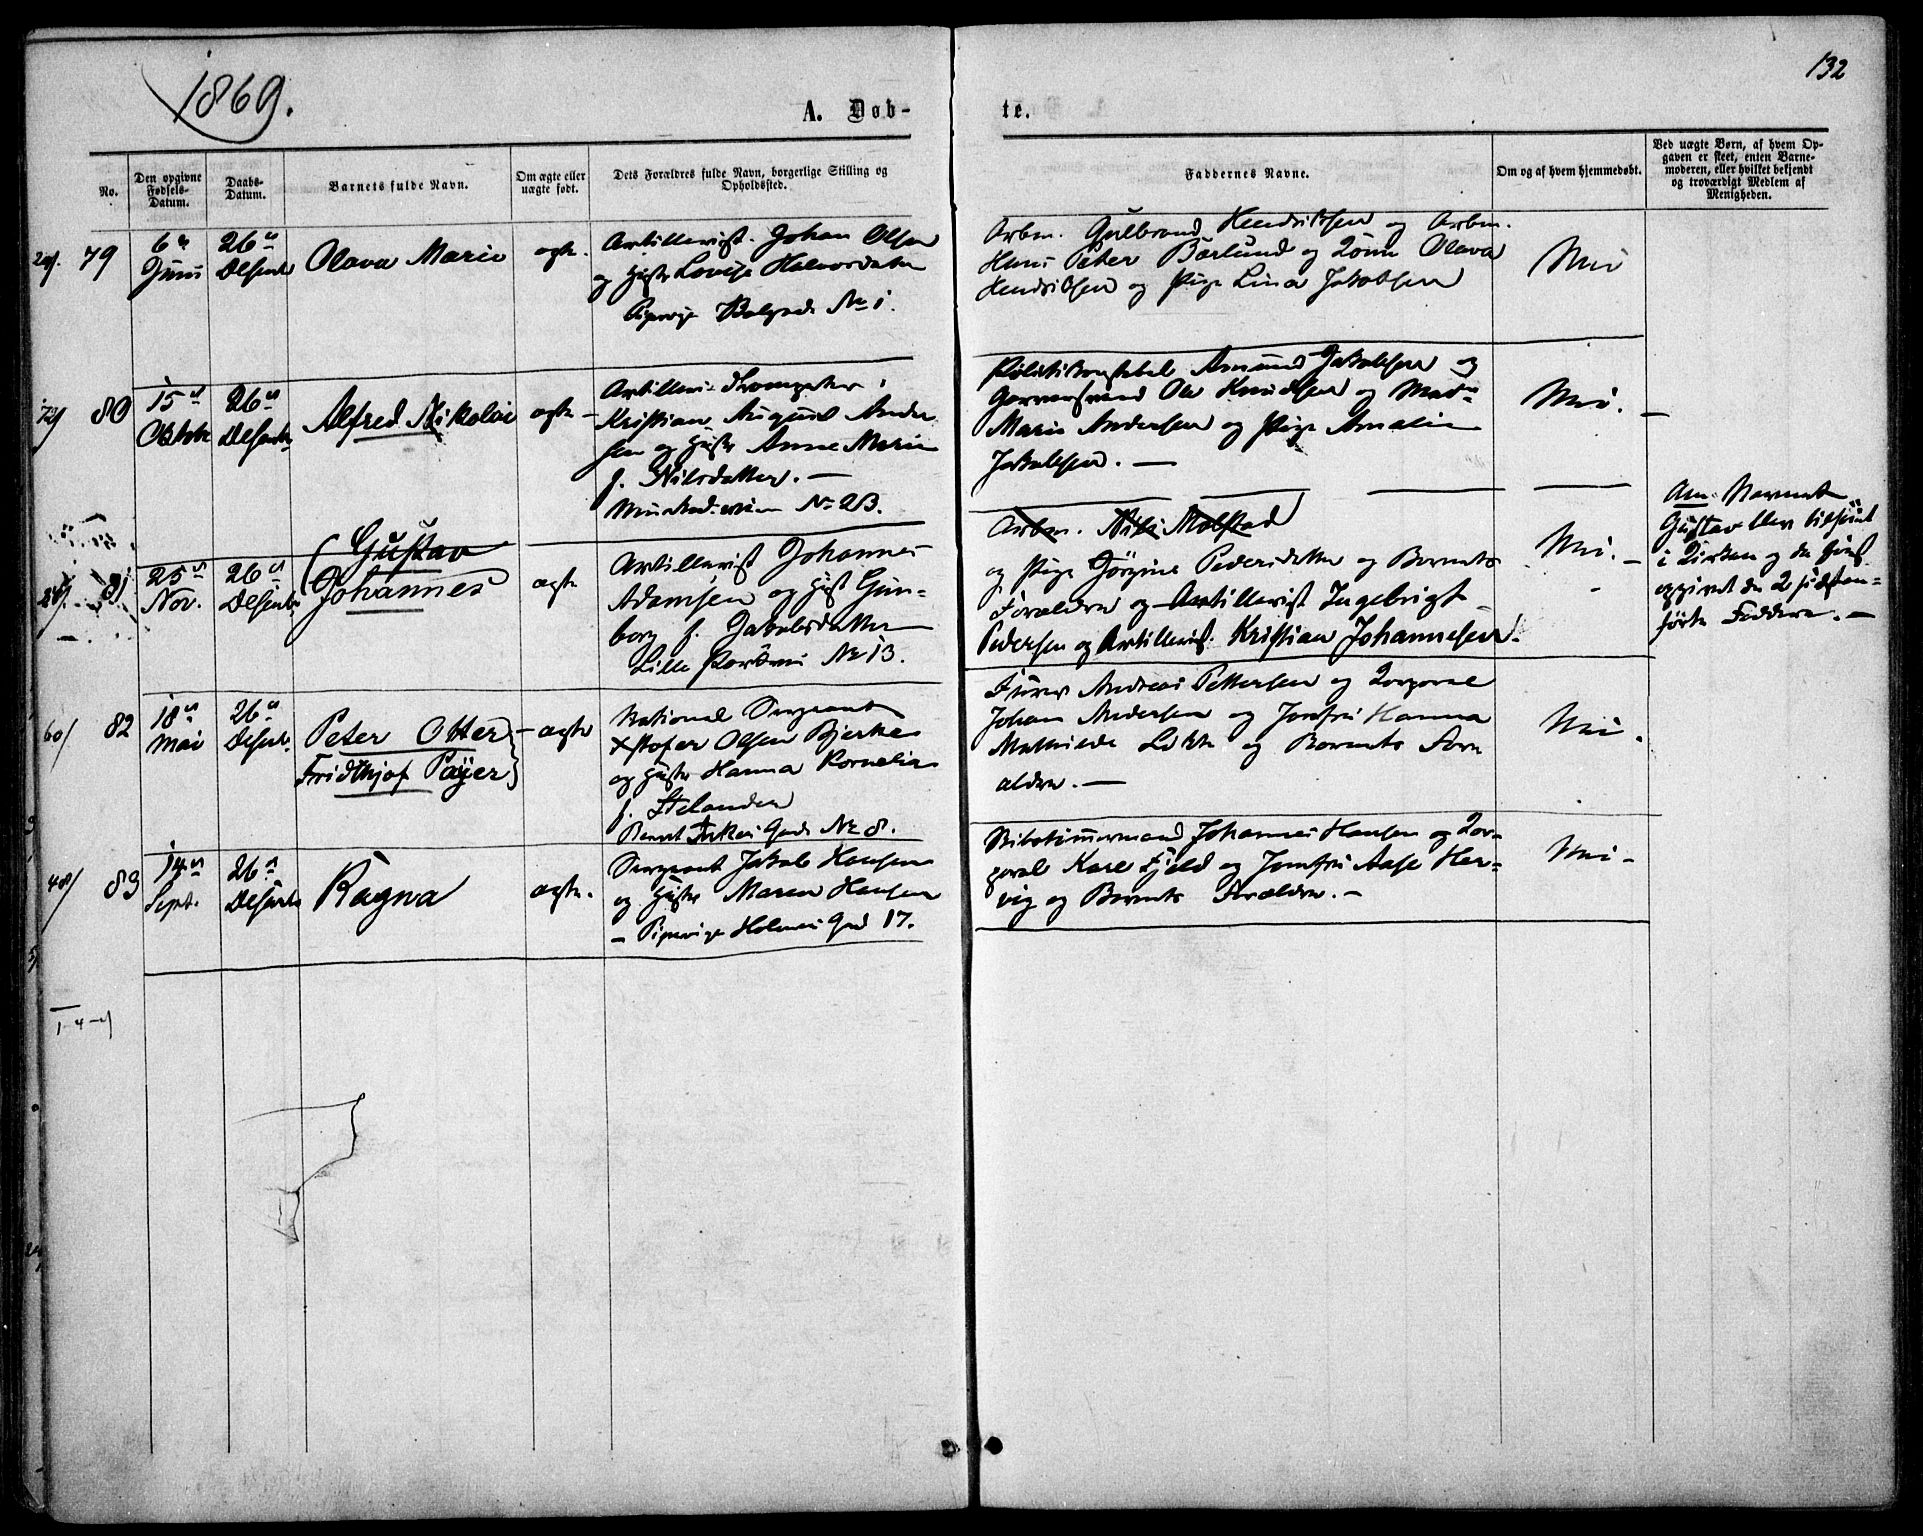 1869.
132
A. Døb-
te.
No.
Den opgivne
Fødsels-
Datum.
Daabs-
Datum.
Barnets fulde Navn.
Om ægte eller
uægte født.
Dets Forældres fulde Navn, borgerlige Stilling og
Opholdssted.
Faddernes Navne.
Om og af hvem hjemmedøbt.
Ved uægte Børn, af hvem Op-
gaven er skeet, enten Barne-
moderen, eller hvilket bekjendt
og troværdigt Medlem af
Menigheden.
79
6te
Juni
26de
Desemb
Olava Marie
ægte.
Artillerist. Johan Olsen
og Hustr Lovise Halvorsdatter
No 1.
Arbm. Gulbrand Hendriksen og Arbm.
Hans Peter Bärlund og Olava
Hendriksen og Pige Lina Jakobsen
Nei
80
15de
Oktobe
26de
Desemb
Alfred Nikolai
ægte -
Artilleri Trompeter
Kristian August Ander
sen og Hustr Anne Marie
f. Nilsdatter. -
No 2B.
Politikonstabel Amund Jakobsen og
Garversvend Ole Knudsen og Mad
Marie Andersen og Pige Amalie
Jakobsen. -
Nei. -
81
25de
Nov.
26de
Desemb
Gustav
Johannes
ægte
Artillerist Johannes
Adamsen og Hust Gun-
borg f. Jakobsdatter
Lille No 13.
Arbm. Nils Molstad
og Pige Jørgine Pedersdatter og Barnets
Forældre og Artillerist Ingebrigt
Pedersen og Artillerist. Kristian Johannesen.
Nei. -
Navnet
Gustav blev tilføiet
i Kirken og
opgivet de 2 sidstan-
førte Faddere. -
60/ 82
18de
Mai
26de
Desemb.
Peter Otter
Fridthjof Payer
- ægte
National Sergeant
Xstofer Olsen Bjerke
og Hustr Hanna Kornelia
f. Stelander
Bernt Ankers Gade No 8.
Furer Andreas Pettersen og Korporal
Johan Andersen og Jomfru Hanna
Mathilde Løkke og Barnets Foræ
ldre. -
Nei.
48/ 83
14de
Sept.
26de
Desemb
Ragna
ægte.
Sergeant Jakob Hansen
og Hustr Maren Hansen
- Pipervige Holmens Gad 17.
Skibstømmermand Johannes Hansen og Kor-
poral Kare Fjeld og Jomfru Aase Her-
vig og Barnets Forældre. -
Nei -